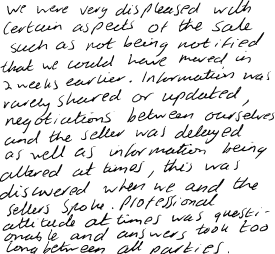 we were very displeased with
certain aspects of the sale
such as not being notified
that we could have moved in
2 weeks earlier. Information was
rarely shared or updated,
negotiations between ourselves
and the seller was delayed
as well as information being
altered at times, this was
discovered when we and the
sellers spoke. Professional
attitude at times was questi-
onable and answers took too
long between all parties.